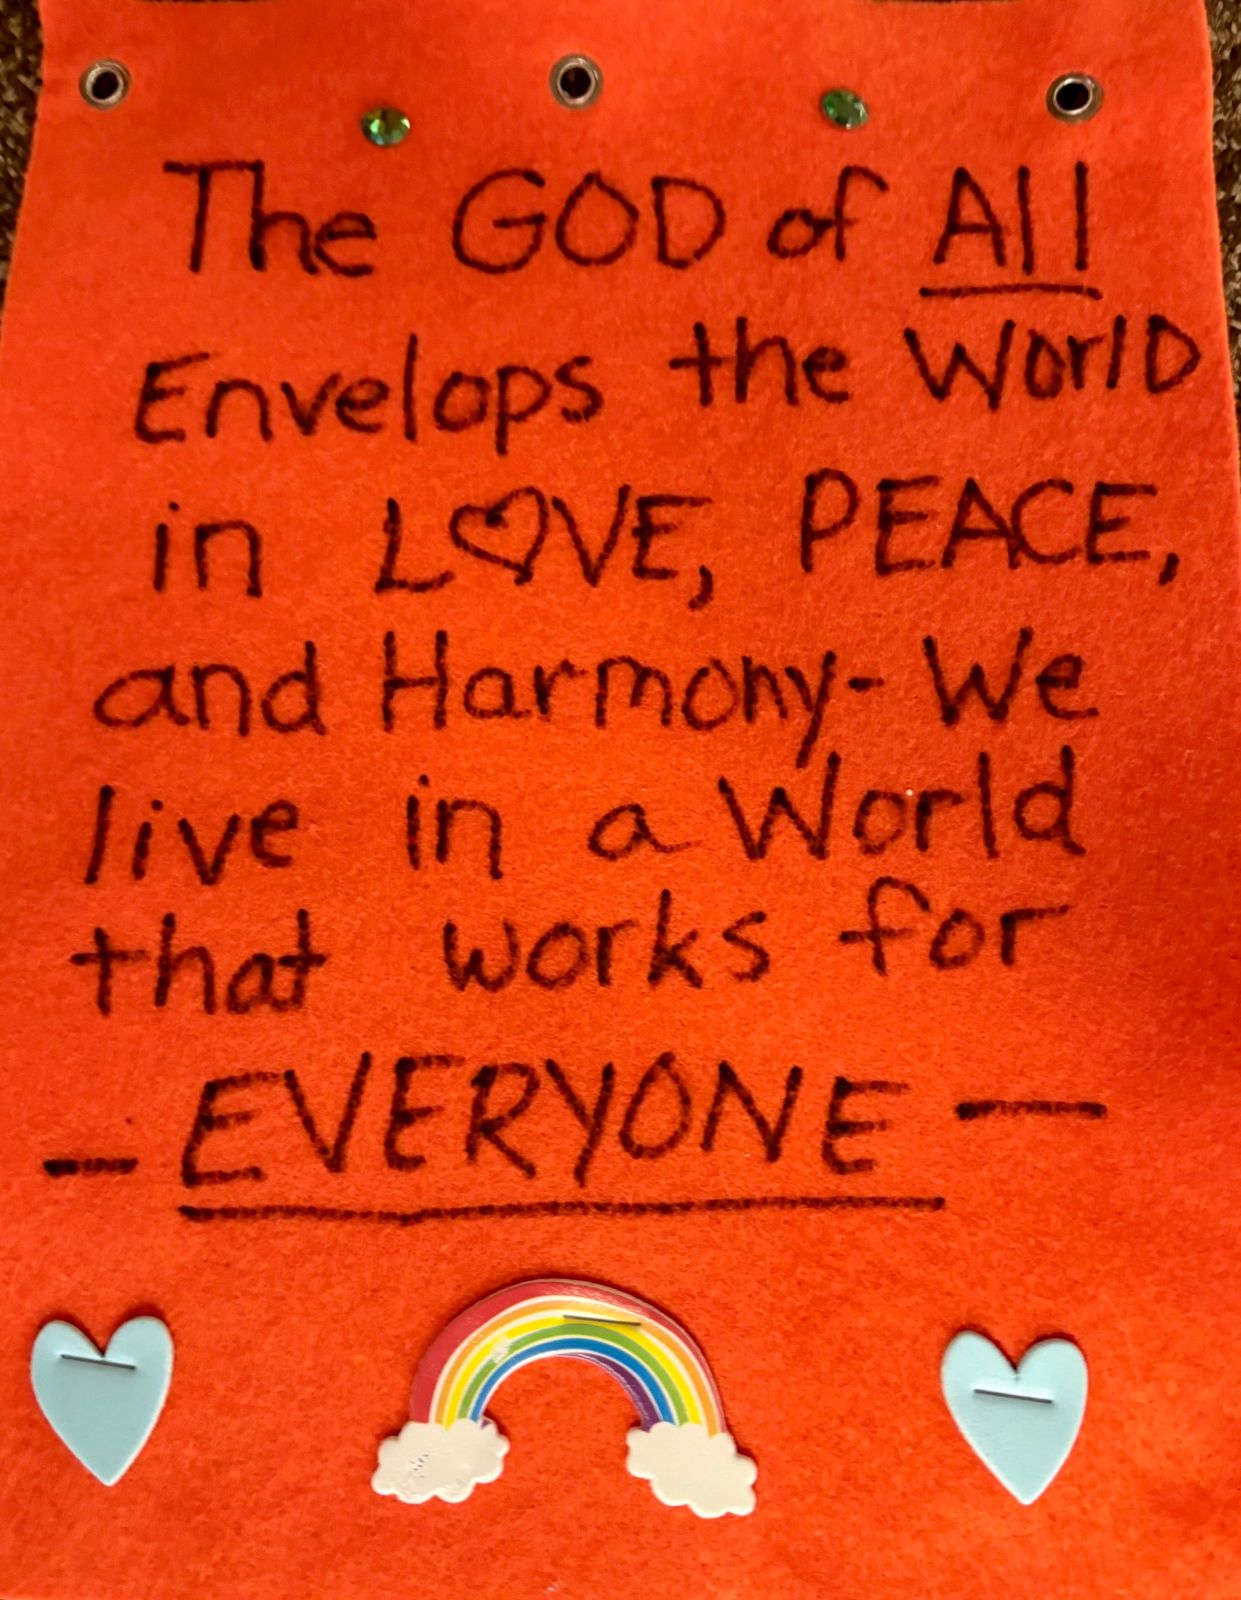 The GOD of All
Envelops the WorlD
in L♡VE, PEACE,
and Harmony- We
live in a World
that works for
- EVERYONE -